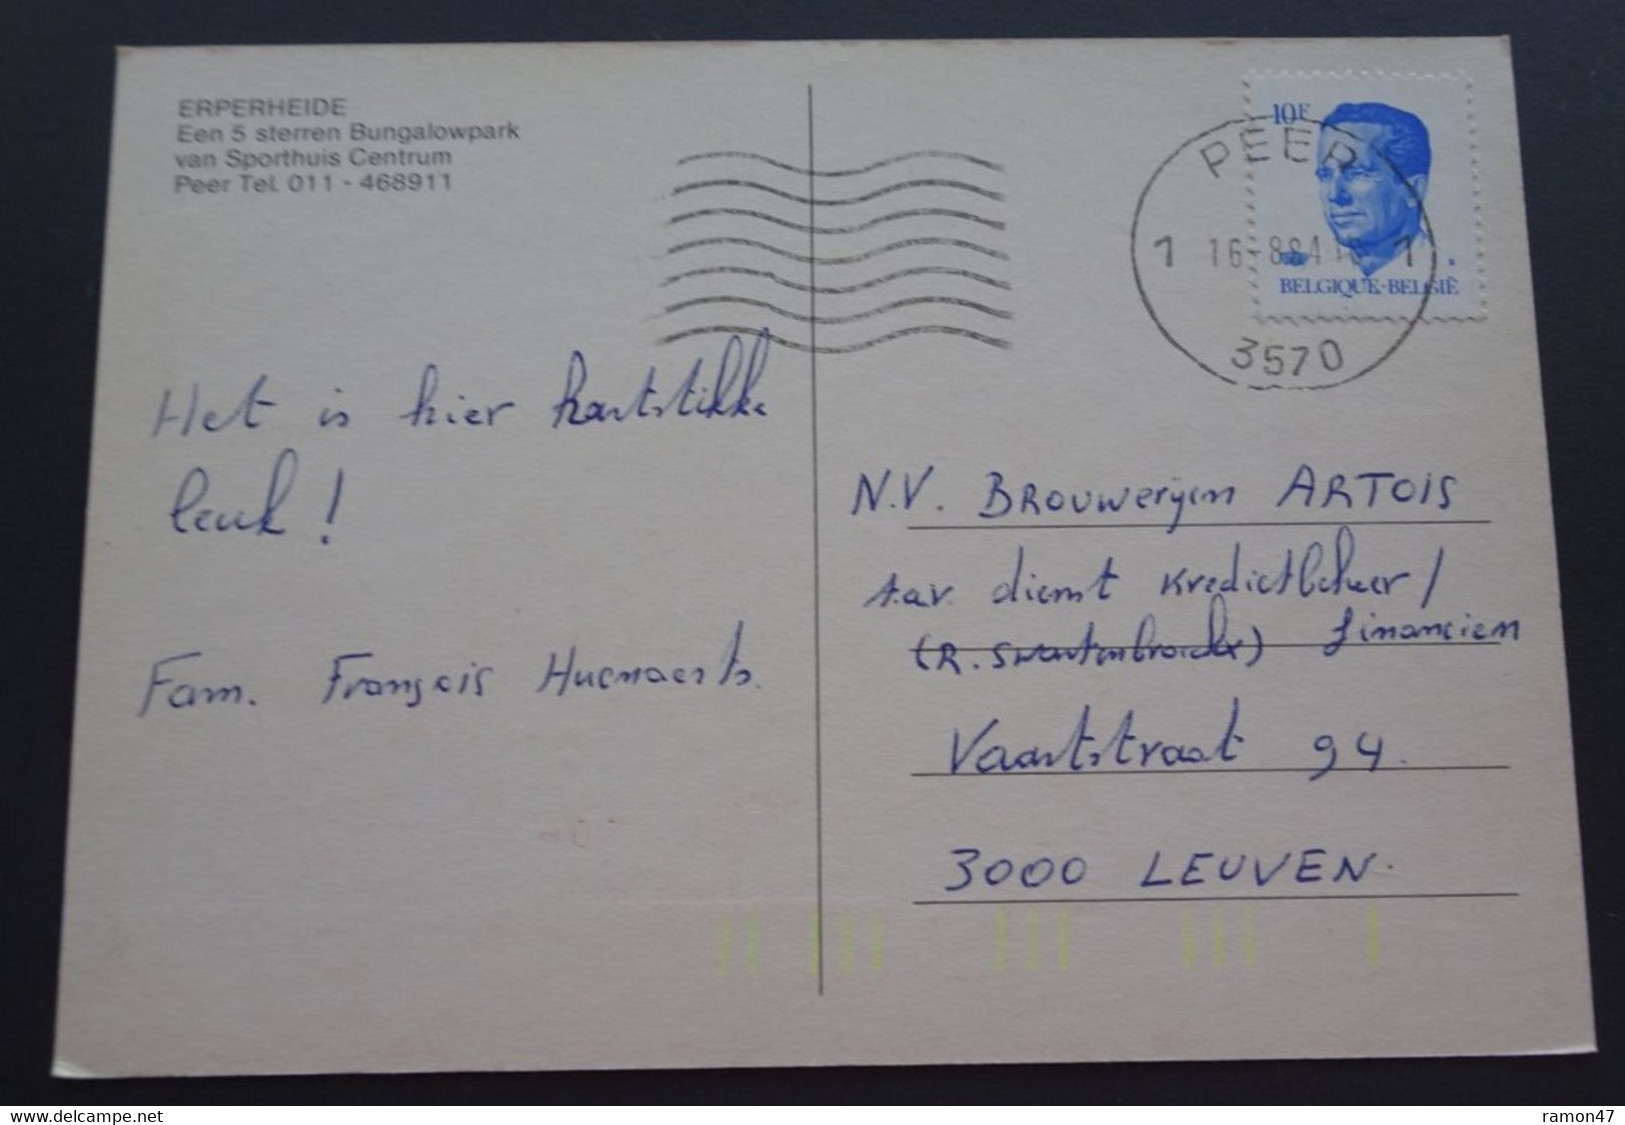 ERPERHEIDE
Een 5 sterren Bungalowpark
van Sporthuis Centrum
Peer Tel. 011 - 468911
10F
BELGIQUE-BELGIË
PEER
1 16-8-84 1
3570
Het is hier hartstikke
leuk !
Fam. François Huenaerts.
N.V. BROUWERIJEN ARTOIS
t.a.v. dienst Kredietbeheer /
(R. ) financiën
Vaartstraat 94.
3000 LEUVEN.
www.delcampe.net
ramon47